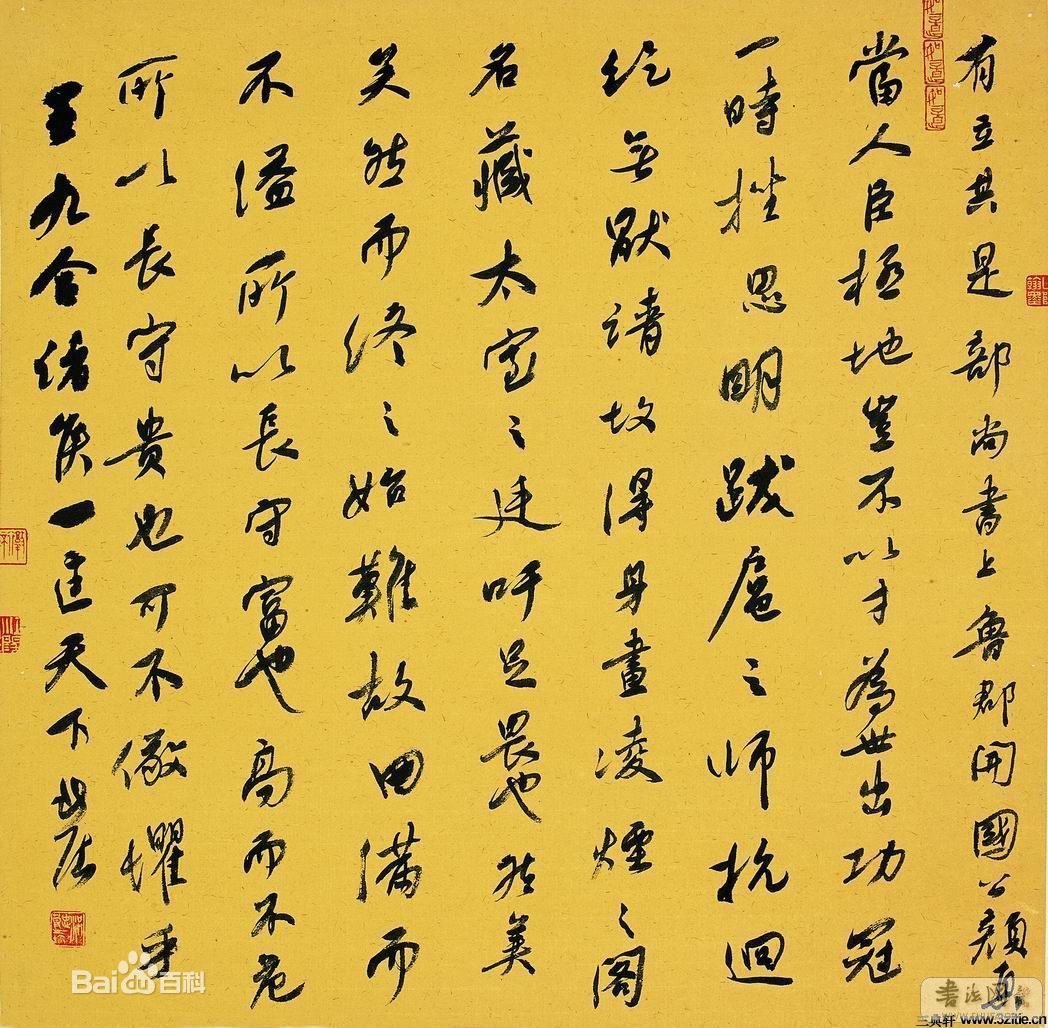 有立其是部尚書上魯郡開國公顏真
當人臣極地豈不以才為世出功冠
一時挫思明跋扈之師抗迴
紇無厭請故得身畫凌煙之閣
名藏太室之廷吁足畏也然美
矣然而終之始難故曰滿而
不溢所以長守富也高而不危
所以長守貴也可不儆懼乎
王九合諸侯一匡天下
Bai百科
www.3zitie.cn